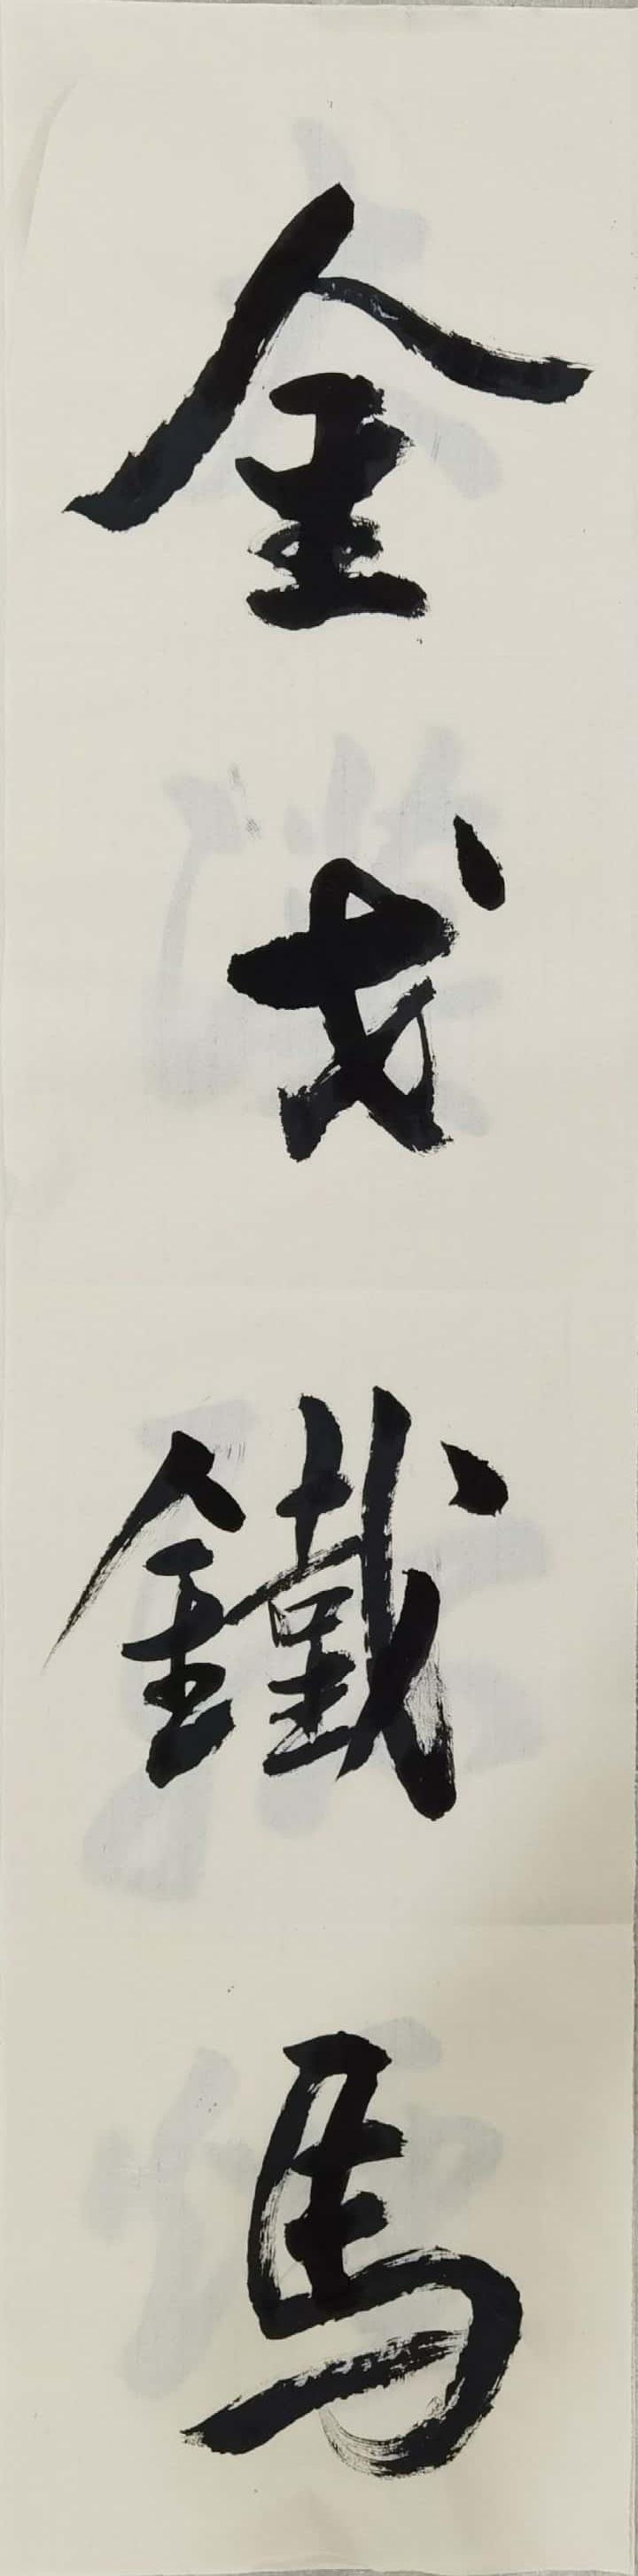 金戈鐵馬